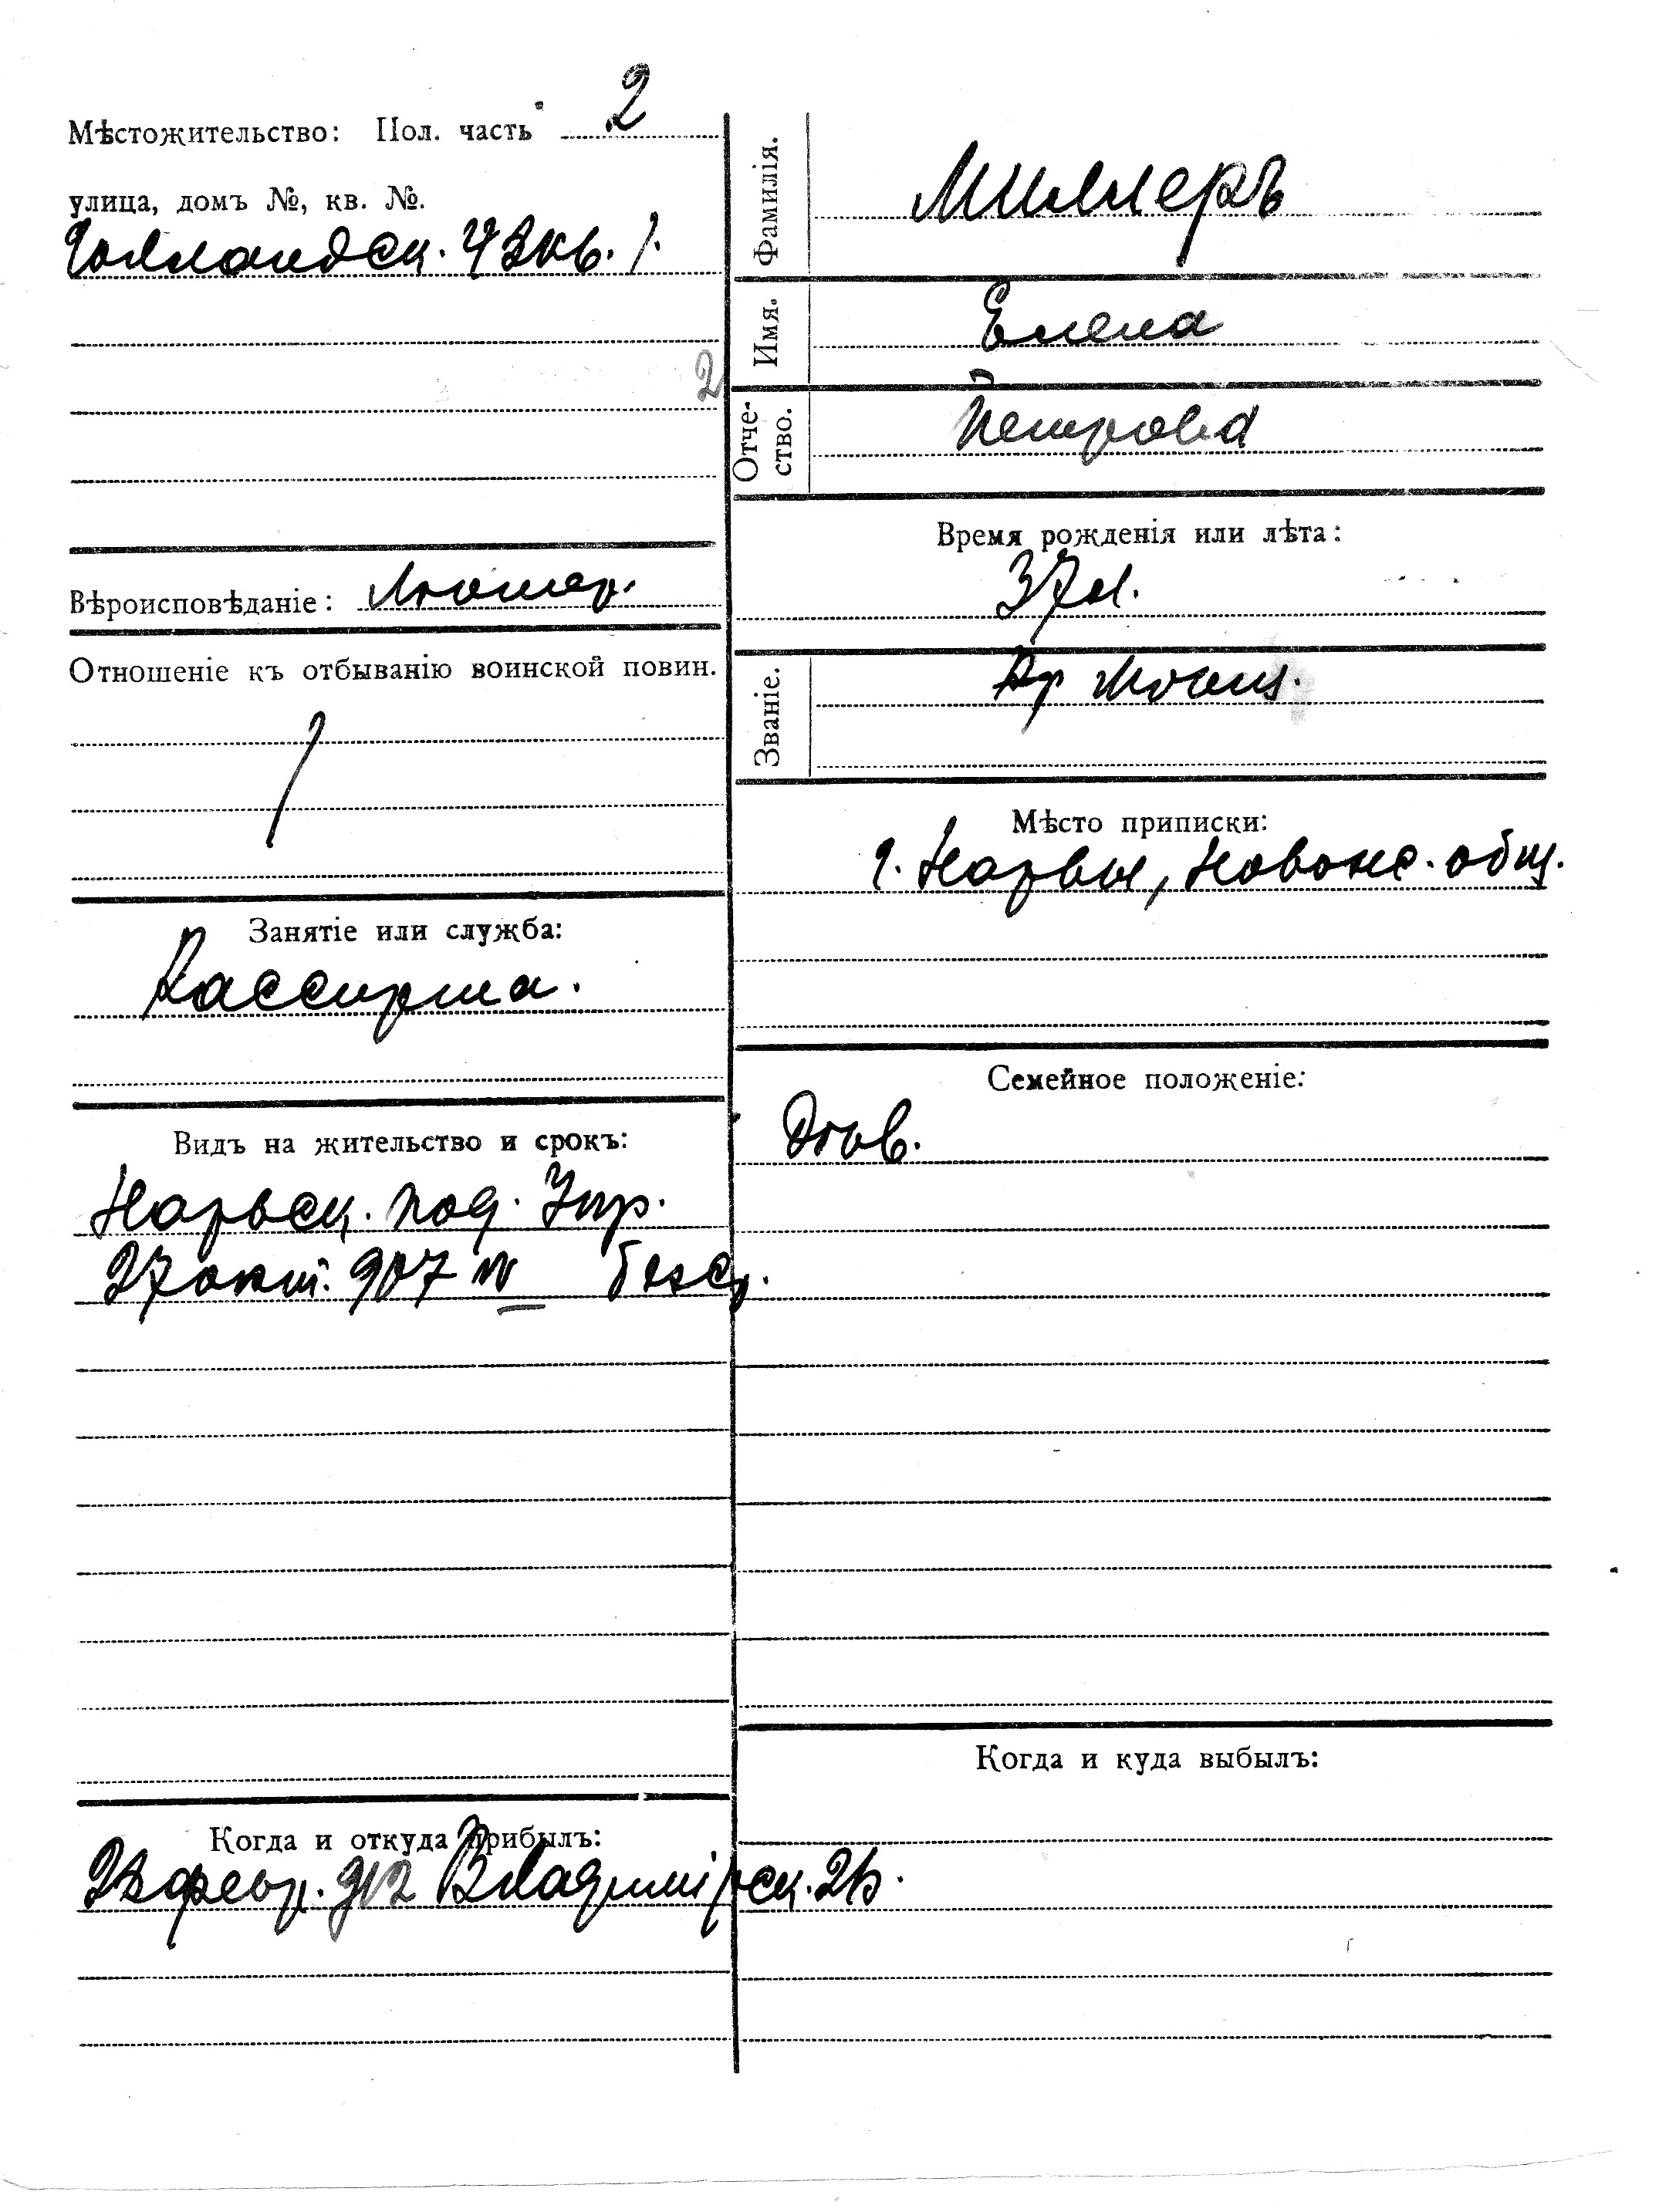 Мѣстожительство: Пол. часть 2
улица, домъ №, кв. №.
Голландск. 43 кв. 1.
2
Вѣроисповѣданіе: Лютер.
Отношеніе къ отбыванію воинской повин.
Занятіе или служба:
Кассирша.
Видъ на жительство и срокъ:
Нарвск. под. Упр.
27 окт. 907 № безср.
Когда и откуда прибылъ:
февр. 912 Владимірск.
Фамилія. Миллеръ
Имя. Елена
Отче-
ство. Петрова
Время рожденія или лѣта:
37 л.
Званіе. Кр
Мѣсто приписки:
г. Нарвы, общ.
Семейное положеніе:
Дѣв.
Когда и куда выбылъ: